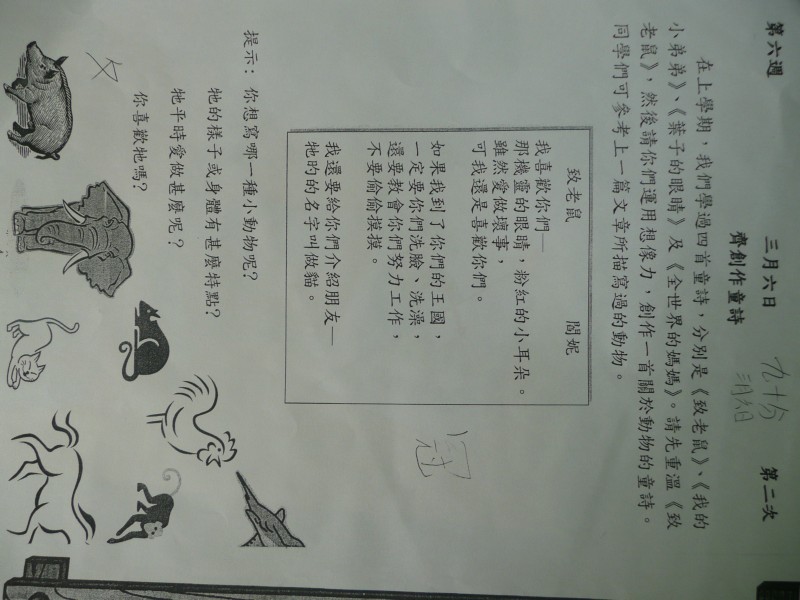 第六週 三月六日 第二次
齊創作童詩
九十分
在上學期，我們學過四首童詩，分別是《致老鼠》、《我的
小弟弟》、《葉子的眼睛》及《全世界的媽媽》。請先重溫《致
老鼠》，然後請你們運用想像力，創作一首關於動物的童詩。
同學們可參考上一篇文章所描寫過的動物。
致老鼠 閻妮
我喜歡你們─
那機靈的眼睛，粉紅的小耳朵。
雖然愛做壞事，
可我還是喜歡你們。
如果找到了你們的王國，
一定要你們洗臉、洗澡，
還要教會你們努力工作，
不要偷偷摸摸。
我還要給你們介紹朋友─
牠的的名字叫做貓。
提示：你想寫哪一種小動物呢？
牠的樣子或身體有甚麼特點？
牠平時愛做甚麼呢？
你喜歡牠嗎？